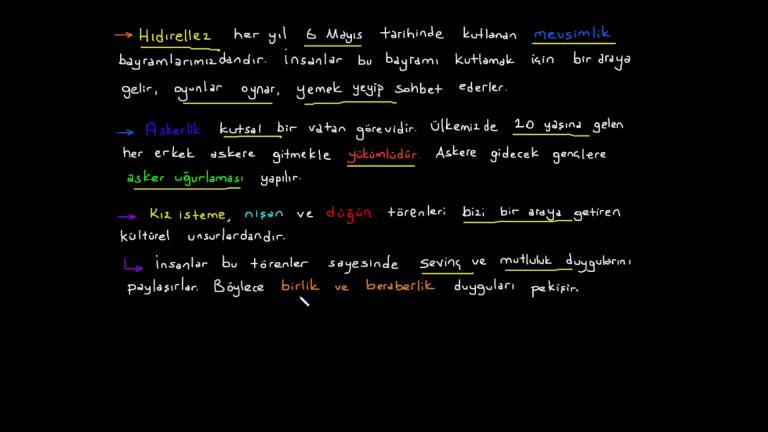 → Hıdırellez her yıl 6 Mayıs tarihinde kutlanan mevsimlik
bayramlarımızdandır. İnsanlar bu bayramı kutlamak için bir araya
gelir, oyunlar oynar, yemek yeyip sohbet ederler.
→ Askerlik kutsal bir vatan görevidir. Ülkemizde 20 yaşına gelen
her erkek askere gitmekle yükümlüdür. Askere gidecek gençlere
asker uğurlaması yapılır.
→ Kız isteme, nişan ve düğün törenleri bizi bir araya getiren
kültürel unsurlardandır.
↳ İnsanlar bu törenler sayesinde sevinç ve mutluluk duygularını
paylaşırlar. Böylece birlik ve beraberlik duyguları pekişir.